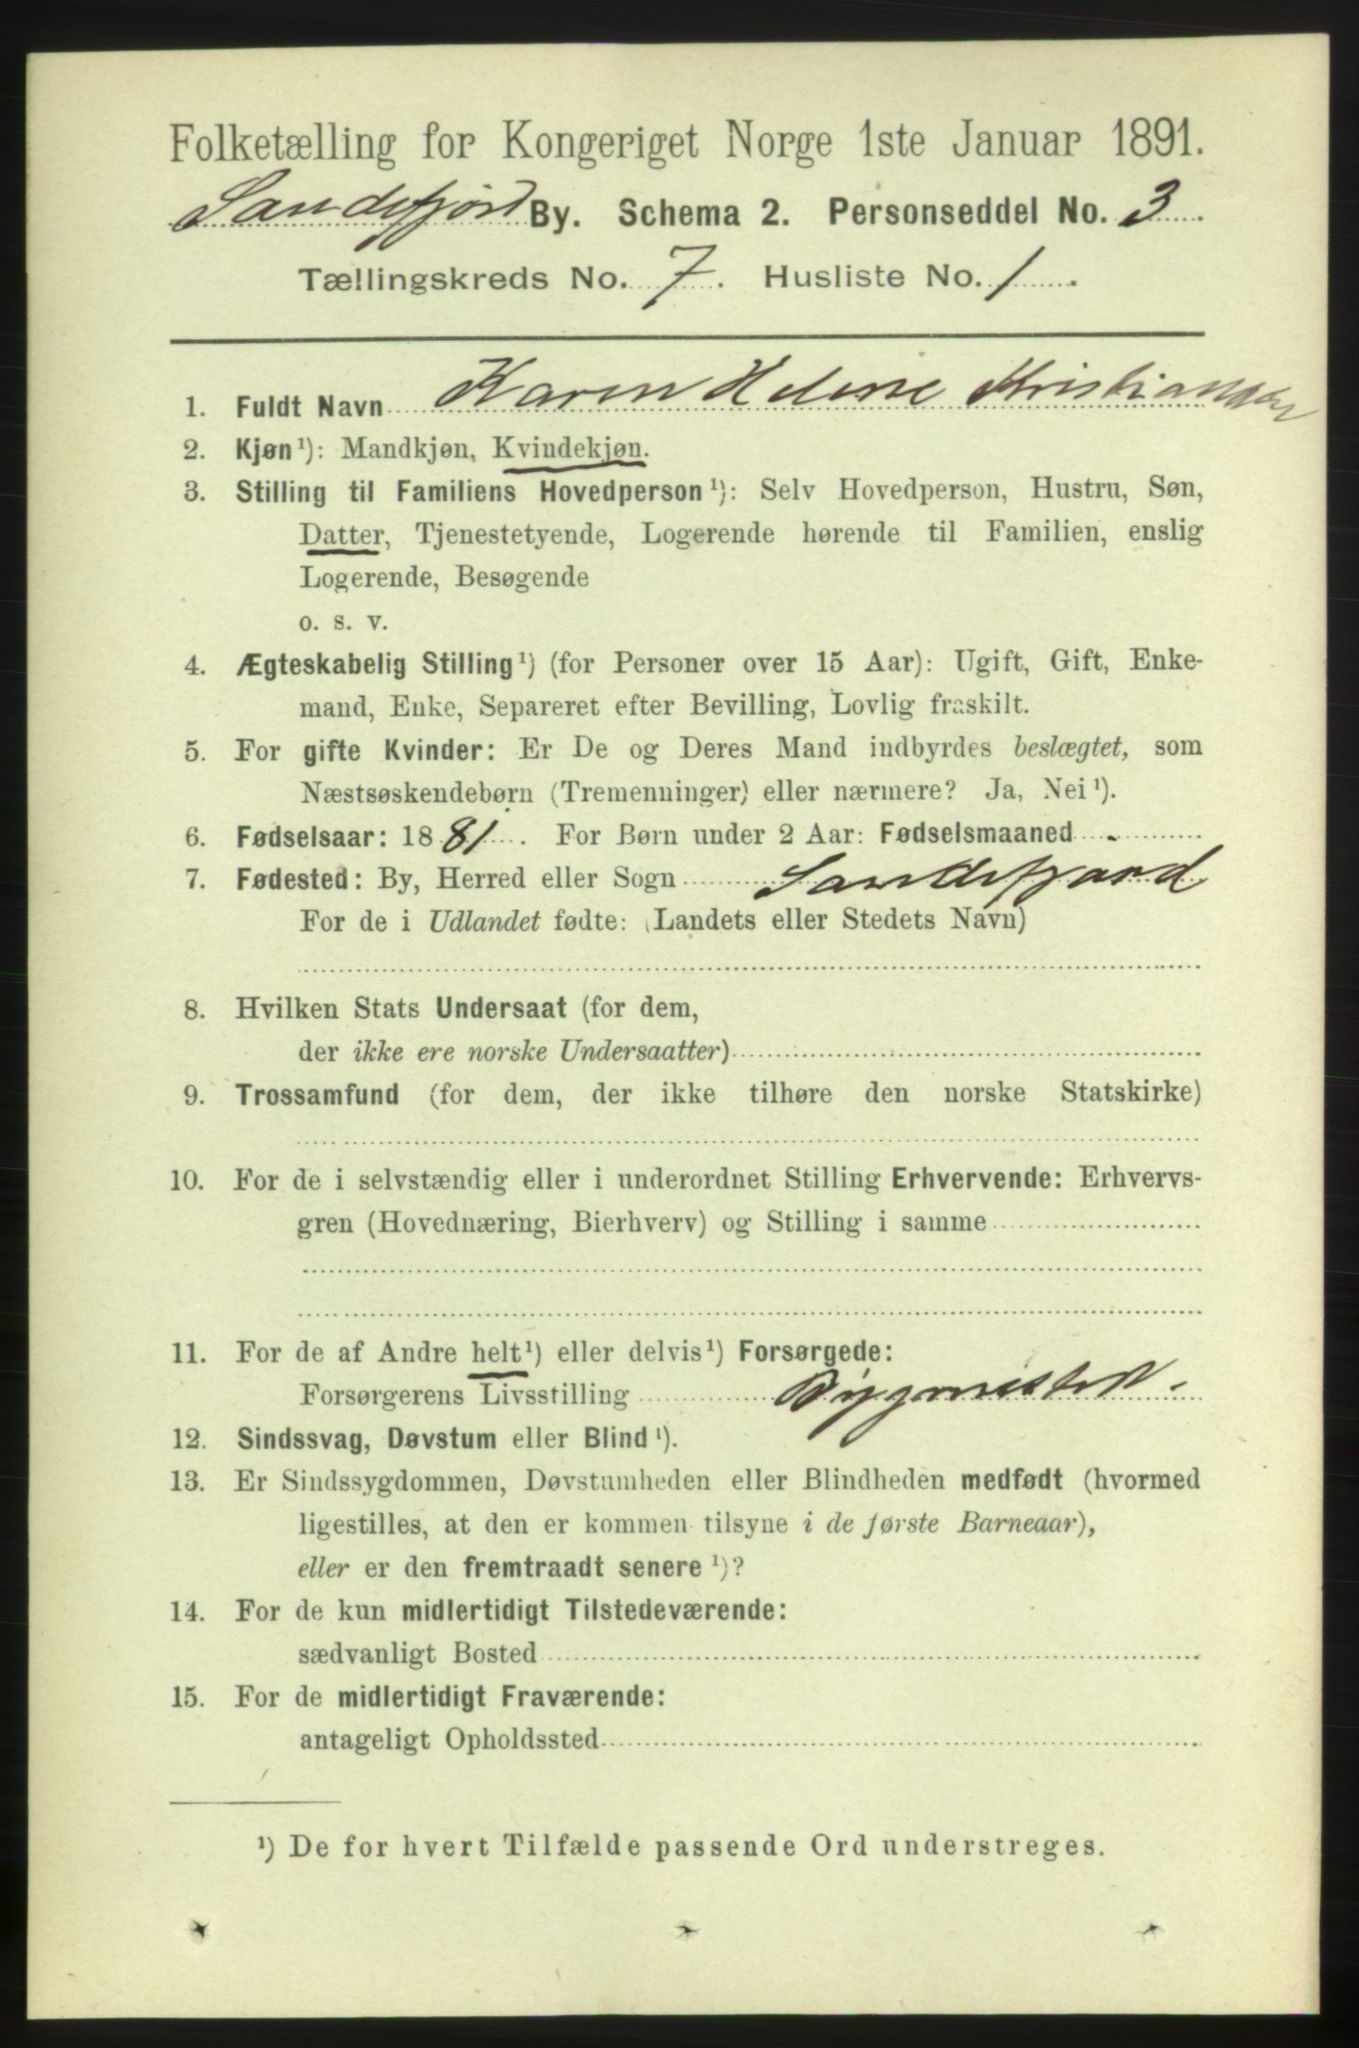 Folketælling for Kongeriget Norge 1ste Januar 1891.
Sandefjord By. Schema 2. Personseddel No. 3.
Tællingskreds No. 7. Husliste No. 1.
1. Fuldt Navn Karen Helene Kristiansen
2. Kjøn¹): Mandkjøn, Kvindekjøn.
3. Stilling til Familiens Hovedperson¹): Selv Hovedperson, Hustru, Søn,
Datter, Tjenestetyende, Logerende hørende til Familien, enslig
Logerende, Besøgende
o. s. v.
4. Ægteskabelig Stilling¹) (for Personer over 15 Aar): Ugift, Gift, Enke-
mand, Enke, Separeret efter Bevilling, Lovlig fraskilt.
5. For gifte Kvinder: Er De og Deres Mand indbyrdes beslægtet, som
Næstsøskendebørn (Tremenninger) eller nærmere? Ja, Nei¹).
6. Fødselsaar: 1881. For Børn under 2 Aar: Fødselsmaaned -
7. Fødested: By, Herred eller Sogn Sandefjord
For de i Udlandet fødte: (Landets eller Stedets Navn)
8. Hvilken Stats Undersaat (for dem,
der ikke ere norske Undersaatter)
9. Trossamfund (for dem, der ikke tilhøre den norske Statskirke)
10. For de i selvstændig eller i underordnet Stilling Erhvervende: Erhvervs-
gren (Hovednæring, Bierhverv) og Stilling i samme
11. For de af Andre helt¹) eller delvis¹) Forsørgede:
Forsørgerens Livsstilling Bygmester.
12. Sindssvag, Døvstum eller Blind¹).
13. Er Sindssygdommen, Døvstumheden eller Blindheden medfødt (hvormed
ligestilles, at den er kommen tilsyne i de første Barneaar),
eller er den fremtraadt senere¹)?
14. For de kun midlertidigt Tilstedeværende:
sædvanligt Bosted
15. For de midlertidigt Fraværende:
antageligt Opholdssted
¹) De for hvert Tilfælde passende Ord understreges.